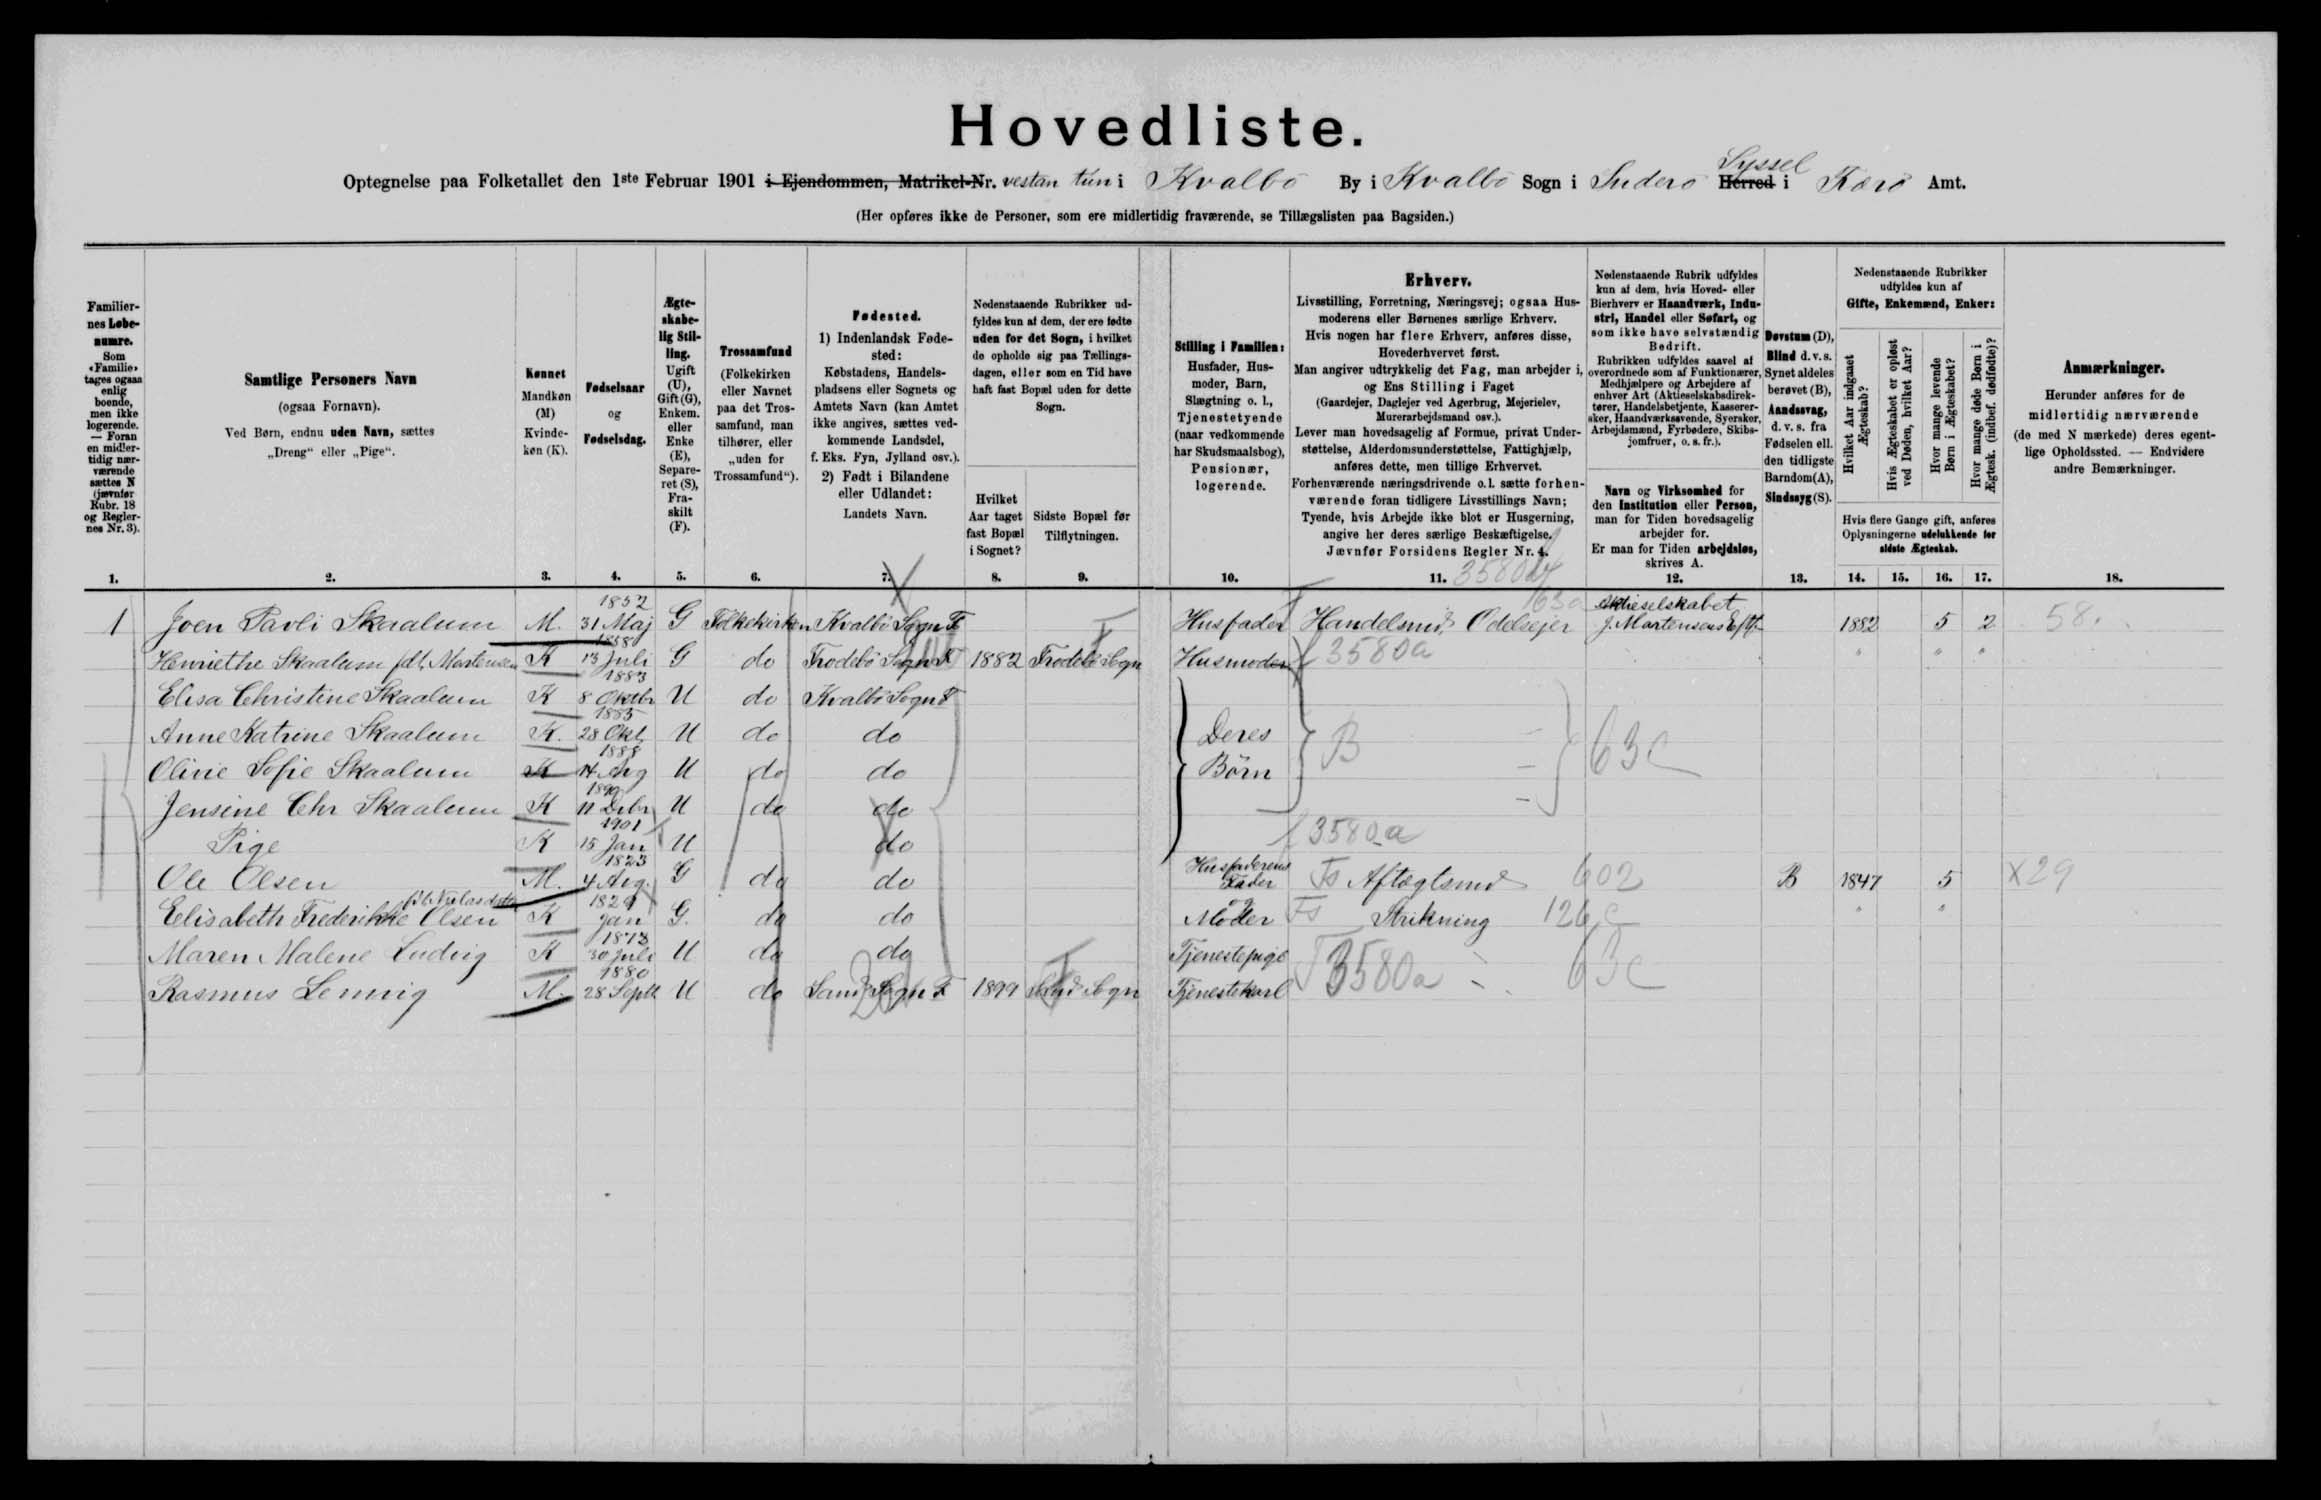 Hovedliste.
Optegnelse paa Folketallet den 1ste Februar 1901 i Ejendommen, Matrikel-Nr. vestan tún i Kvalbö By i Kvalbö Sogn i Suderö Herred Syssel i Færö Amt.
(Her opføres ikke de Personer, som ere midlertidig fraværende, se Tillægslisten paa Bagsiden.)
Familiernes Løbenumre.
Som «Familie» tages ogsaa enlig boende, men ikke logerende. — Foran en midlertidig nærværende sættes N (jævnfør Rubr. 18 og Reglernes Nr. 3).
1.
Samtlige Personers Navn
(ogsaa Fornavn).
Ved Børn, endnu uden Navn, sættes
„Dreng“ eller „Pige“.
2.
Kønnet
Mandkøn
(M)
Kvindekøn (K).
3.
Fødselsaar
og
Fødselsdag.
4.
Ægteskabelig Stilling.
Ugift (U), Gift (G), Enkem. eller Enke (E), Separeret (S), Fraskilt (F).
5.
Trossamfund
(Folkekirken eller Navnet paa det Trossamfund, man tilhører, eller „uden for Trossamfund“).
6.
Fødested.
1) Indenlandsk Fødested:
Købstadens, Handelspladsens eller Sognets og Amtets Navn (kan Amtet ikke angives, sættes vedkommende Landsdel, f. Eks. Fyn, Jylland osv.).
2) Født i Bilandene eller Udlandet:
Landets Navn.
7.
Nedenstaaende Rubrikker udfyldes kun af dem, der ere fødte uden for det Sogn, i hvilket de opholde sig paa Tællingsdagen, eller som en Tid have haft fast Bopæl uden for dette Sogn.
Hvilket Aar taget fast Bopæl i Sognet?
8.
Sidste Bopæl før Tilflytningen.
9.
Stilling i Familien:
Husfader, Husmoder, Barn, Slægtning o. l., Tjenestetyende (naar vedkommende har Skudsmaalsbog), Pensionær, logerende.
10.
Erhverv.
Livsstilling, Forretning, Næringsvej; ogsaa Husmoderens eller Børnenes særlige Erhverv.
Hvis nogen har flere Erhverv, anføres disse, Hovederhvervet først.
Man angiver udtrykkelig det Fag, man arbejder i, og Ens Stilling i Faget
(Gaardejer, Daglejer ved Agerbrug, Mejerielev, Murerarbejdsmand osv.).
Lever man hovedsagelig af Formue, privat Understøttelse, Alderdomsunderstøttelse, Fattighjælp, anføres dette, men tillige Erhvervet.
Forhenværende næringsdrivende o. l. sætte forhenværende foran tidligere Livsstillings Navn;
Tyende, hvis Arbejde ikke blot er Husgerning, angive her deres særlige Beskæftigelse.
Jævnfør Forsidens Regler Nr. 4.
11.
Nedenstaaende Rubrik udfyldes kun af dem, hvis Hoved- eller Bierhverv er Haandværk, Industri, Handel eller Søfart, og som ikke have selvstændig Bedrift.
Rubrikken udfyldes saavel af overordnede som af Funktionærer, Medhjælpere og Arbejdere af enhver Art (Aktieselskabsdirektører, Handelsbetjente, Kasserersker, Haandværkssvende, Syersker, Arbejdsmænd, Fyrbødere, Skibsjomfruer, o. s. fr.).
Navn og Virksomhed for den Institution eller Person, man for Tiden hovedsagelig arbejder for.
Er man for Tiden arbejdsløs, skrives A.
12.
Døvstum (D), Blind d. v. s. Synet aldeles berøvet (B), Aandssvag, d. v. s. fra Fødselen ell. den tidligste Barndom (A), Sindssyg (S).
13.
Nedenstaaende Rubrikker udfyldes kun af
Gifte, Enkemænd, Enker:
Hvilket Aar indgaaet Ægteskab?
Hvis Ægteskabet er opløst ved Døden, hvilket Aar?
Hvor mange levende Børn i Ægteskabet?
Hvor mange døde Børn i Ægtesk. (indbef. dødfødte)?
Hvis flere Gange gift, anføres Oplysningerne udelukkende for sidste Ægteskab.
14. 15. 16. 17.
Anmærkninger.
Herunder anføres for de midlertidig nærværende (de med N mærkede) deres egentlige Opholdssted. — Endvidere andre Bemærkninger.
18.
3580
1 Joen Pavli Skaalum M. 1852 31 Maj G Folkekirken Kvalbö Sogn F Husfader Handelsmd, Odelsejer Aktieselskabet J. Mortensens Eftf 1882 5 2 58.
Henriethe Skaalum fdt. Mortensen K 13 Juli G do Frodebö Sogn F 1882 Frodebö Sogn Husmoder 3580a " " "
Elisa Christine Skaalum K 1883 8 Oktbr U do Kvalbö Sogn F
Anne Katrine Skaalum K. 1885 28 Okt. U do do Deres B 63c
Olivie Sofie Skaalum K 1888 14 Aug U do do Börn
Jensine Chr Skaalum K 11 Debr U do do
Pige K 1901 15 Jan U do 3580a
Ole Olsen M. 1823 4 Aug. G do do Husfaderens Fader Fs Aftægtsmd 602 B 1847 5 X29
Elisabeth Frederikke Olsen K Jan G. do do og Moder Fs Strikning 126c " "
Maren Malene Ludvig K 1873 30 Juli U do do Tjenestepige
Rasmus Lennig M. 1880 28 Septb. U do Sand Sogn F 1899 Sand Sogn Tjenestekarl 3580a 63c